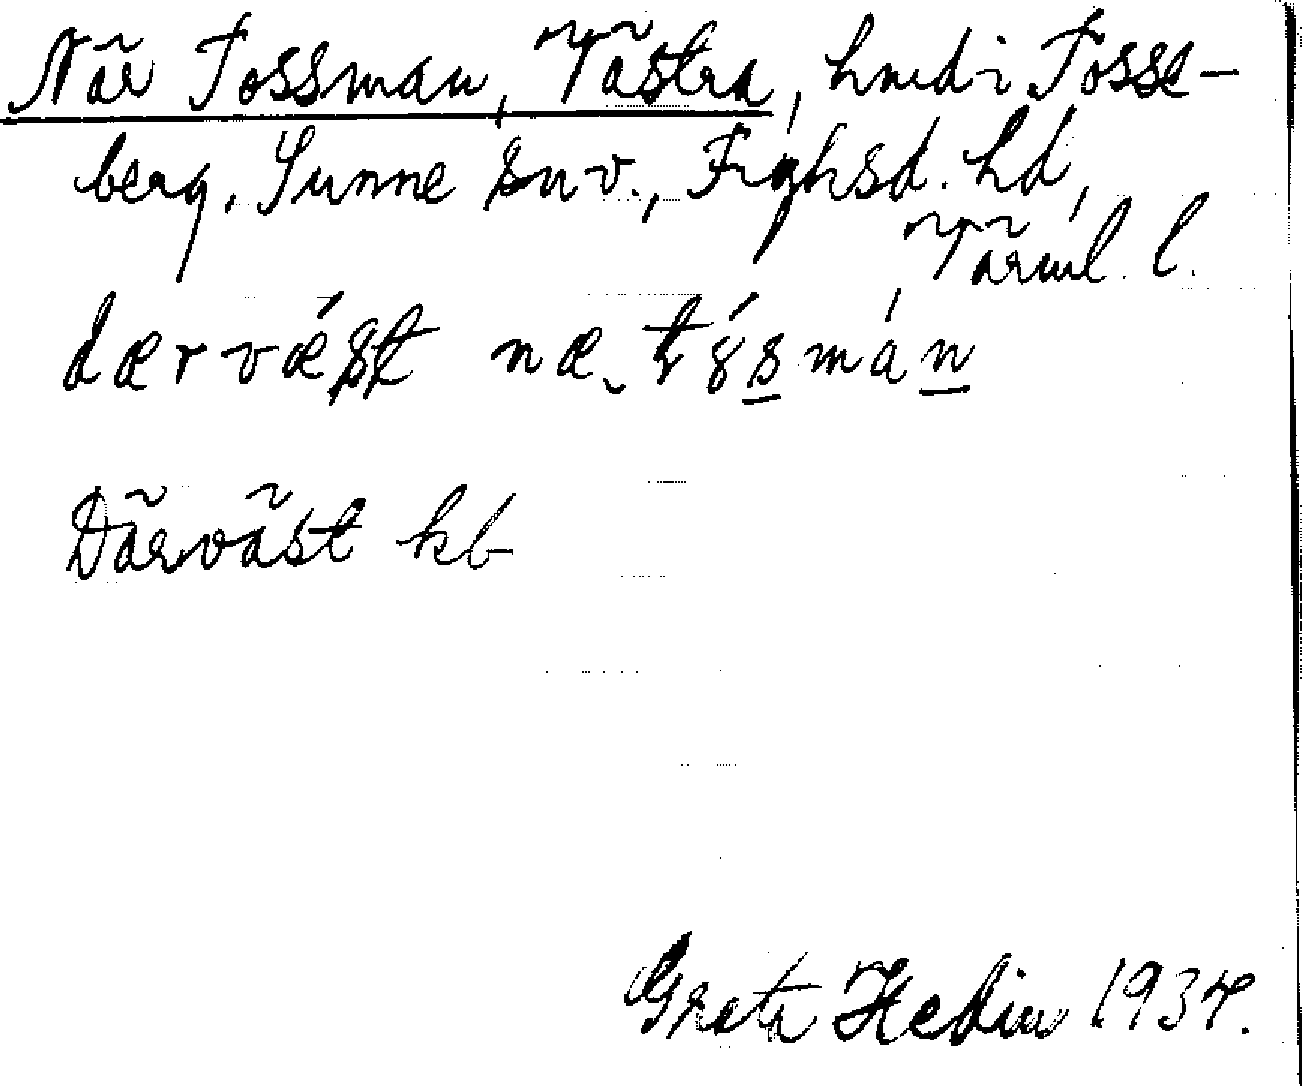 När Tossman, Västra, hmd i Tosse-
berg. Sunne sn v., Fryksd. hd,
Värml. l.
dærvǽst næ tɤ́smán
Därväst kb
Greta Hedin 1934.